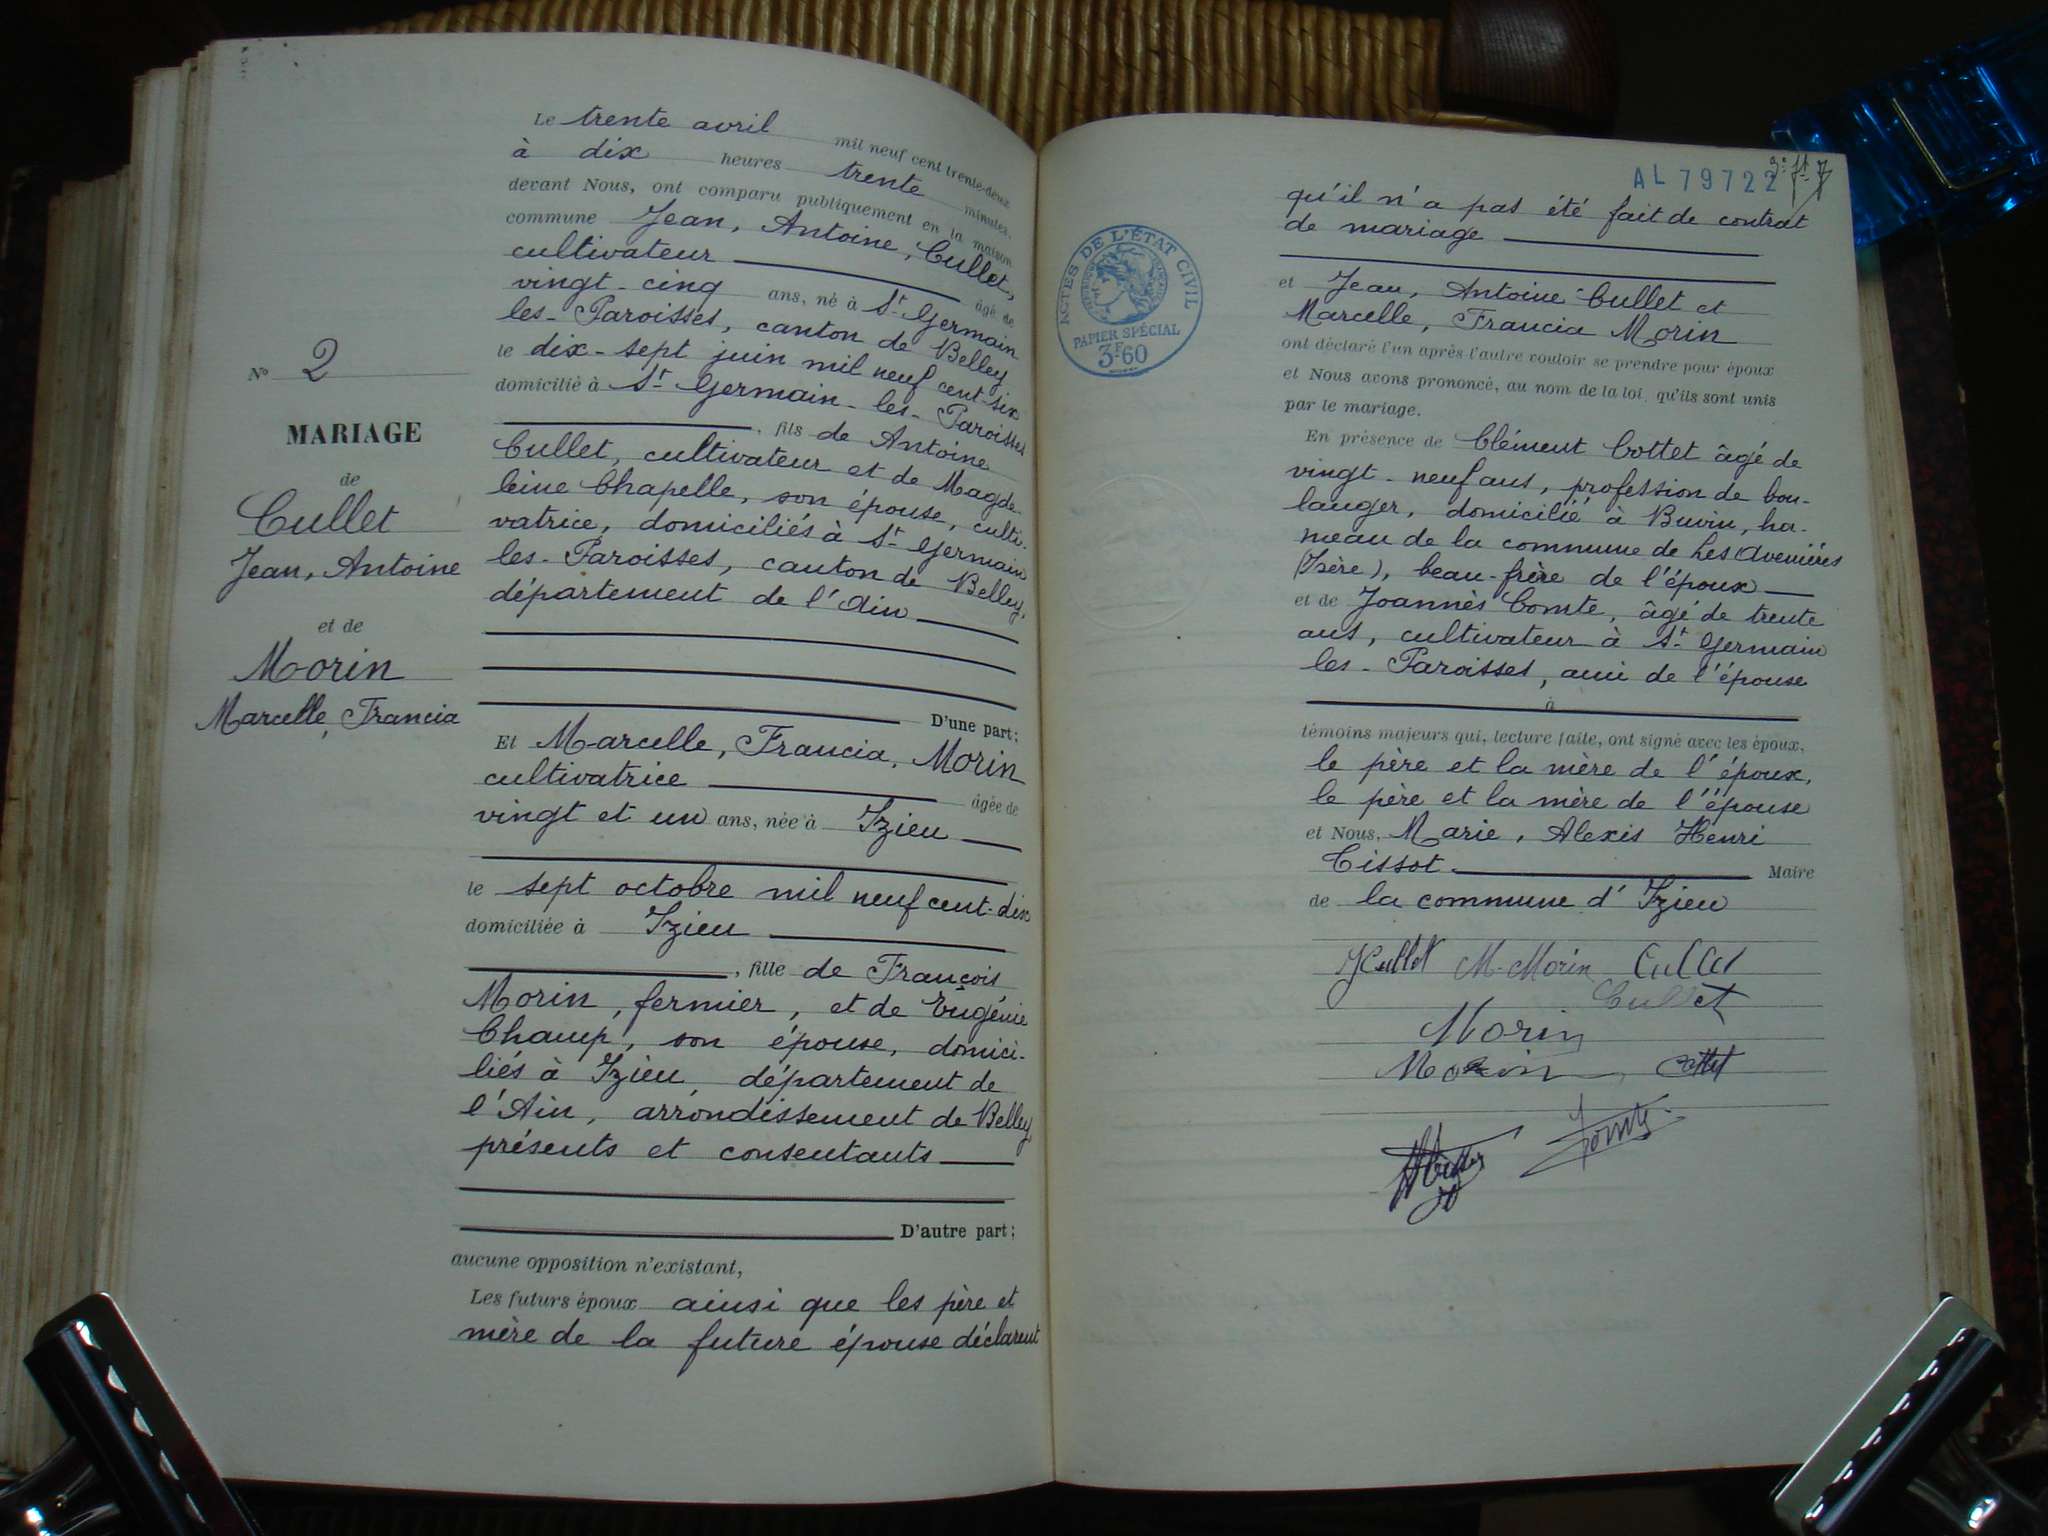 Le trente avril mil neuf cent trente-deux
à dix heures trente minutes,
devant Nous, ont comparu publiquement en la maison
commune Jean, Antoine, Cullet,
cultivateur âgé de
vingt-cinq ans, né à St Germain
les-Paroisses, canton de Belley
le dix-sept juin mil neuf cent-six
domicilié à St Germain-les-Paroisses
, fils de Antoine
Cullet, cultivateur et de Magde-
leine Chapelle, son épouse, culti-
vatrice, domiciliés à St Germain
les-Paroisses, canton de Belley,
département de l'Ain
D'une part;
Et Marcelle, Francia, Morin
cultivatrice âgée de
vingt et un ans, née à Izieu
le sept octobre mil neuf cent-dix
domiciliée à Izieu
, fille de François
Morin, fermier, et de Eugénie
Champ, son épouse, domici-
liés à Izieu, département de
l'Ain, arrondissement de Belley,
présents et consentants
D'autre part;
aucune opposition n'existant,
Les futurs époux ainsi que les père et
mère de la future épouse déclarent
No 2
MARIAGE
de
Cullet
Jean, Antoine
et de
Morin
Marcelle, Francia
AL 79722
ACTES DE L'ÉTAT CIVIL
PAPIER SPÉCIAL
3F60
qu'il n'a pas été fait de contrat
de mariage
et Jean, Antoine Cullet et
Marcelle, Francia Morin
ont déclaré l'un après l'autre vouloir se prendre pour époux
et Nous avons prononcé, au nom de la loi, qu'ils sont unis
par le mariage.
En présence de Clément Cottet âgé de
vingt-neuf ans, profession de bou-
langer, domicilié à Buvin, ha-
meau de la commune de Les Avenières
(Isère), beau-frère de l'époux
et de Joannès Comte, âgé de trente
ans, cultivateur à St Germain
les-Paroisses, ami de l'épouse
à
témoins majeurs qui, lecture faite, ont signé avec les époux,
le père et la mère de l'époux,
le père et la mère de l'épouse
et Nous, Marie, Alexis Henri
Tissot Maire
de la commune d'Izieu
JCullet M-Morin Cullet
Cullet
Morin
Morin Cottet
Comte